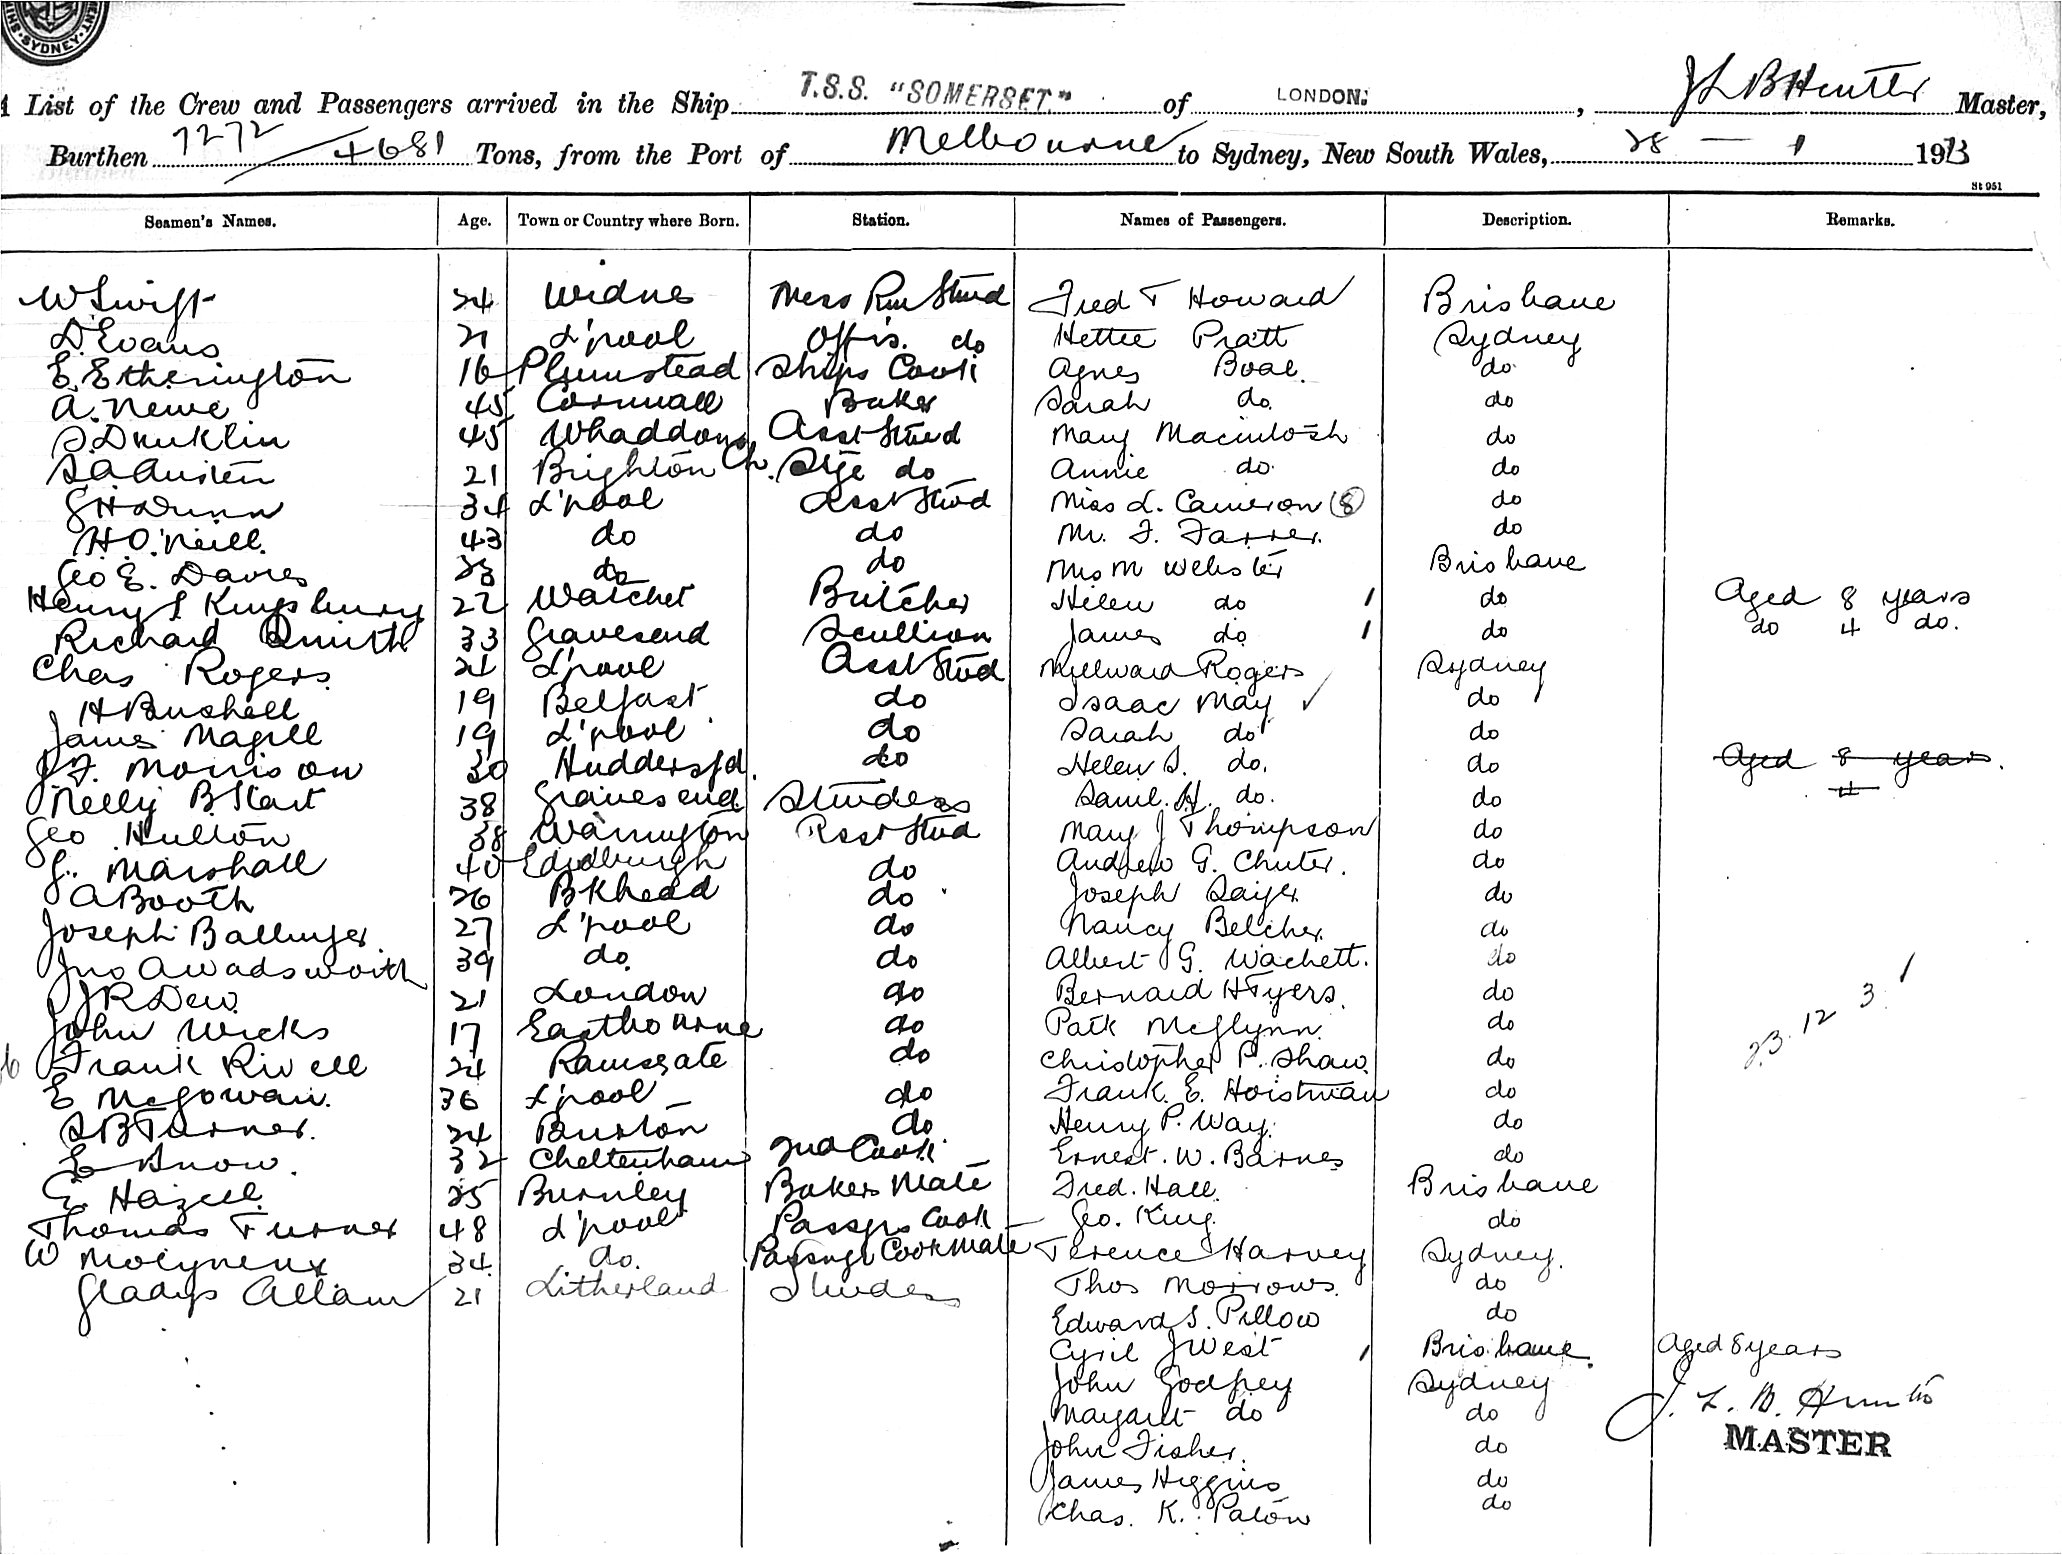 SYDNEY
List of the Crew and Passengers arrived in the Ship T.S.S. "SOMERSET" of LONDON. , J L B Hunter Master,
Burthen 7272 / 4681 Tons, from the Port of Melbourne to Sydney, New South Wales, 28 - 1 1913
St 951
Seamen's Names. Age. Town or Country where Born. Station. Names of Passengers. Description. Remarks.
W Swift 24 Widnes Mess Rm Stwd Fred T Howard Brisbane
D. Evans 21 L'pool Offrs. do Hettie Pratt Sydney
E. Etherington 16 Plumstead Ships Cook Agnes Boal do
A. Newe 45 Cornwall Baker Sarah do do
45 Whaddon Asst Stwd Mary Macintosh do
S.A. Austen 21 Brighton Ch. Stge do Annie do do
G H Dunn 34 L'pool Asst Stwd Miss L. Cameron (8) do
H. O'Neill. 43 do do Mr. F. Farrer. do
Geo E. Davies do do Mrs M Webster Brisbane
Henry J Kingsbury 22 Watchet Butcher Helen do 1 do Aged 8 years
Richard Smith 33 Gravesend Scullion James do 1 do do 4 do.
Chas Rogers 24 L'pool Asst Stwd Millward Rogers Sydney
H Bushell 19 Belfast do Isaac May do
James Magill 19 L'pool do Sarah do do
J F. Morrison 30 Huddersfd. do Helen S. do. do Aged 8 years. 4
Nelly B Start 38 Gravesend Stwdess Saml. H. do. do
Geo Hulton 38 Warrington Asst Stwd Mary J Thompson do
G. Marshall 40 Edinburgh do Andrew G. Chuter. do
A Booth 26 B'Khead do Joseph Sayer do
Joseph Ballinger 27 L'pool do Nancy Belcher do
Jno A Wadsworth 39 do. do Albert G. Wachett. do
J R Dew. 21 London do Bernard H Tyers. do
John Wicks 17 Eastbourne do Patk McGlynn do
Frank Rivell 24 Ramsgate do Christopher P. Shaw. do 23. 12 3. 1
E McGowan. 36 L'pool do Frank. E. Horstman do
S B Turner. 24 Burton do Henry P. Way. do
E Snow. 32 Cheltenham 2nd Cook Ernest. W. Barnes do
E Hazell. 25 Burnley Bakers Mate Fred. Hall. Brisbane
Thomas Turner 48 L'pool Passgrs Cook Geo. King. do
W Molyneux 34. do. Passngr Cook Mate Terence Harvey Sydney.
Gladys Allam 21 Litherland Stwdess Thos Morrows. do
Edward S. Pillow do
Cyril J West 1 Brisbane. Aged 8 years
John Godfrey Sydney
Margaret do do J. L. B. Hunter
John Fisher. do MASTER
James Higgins do
Chas. K. Paton do